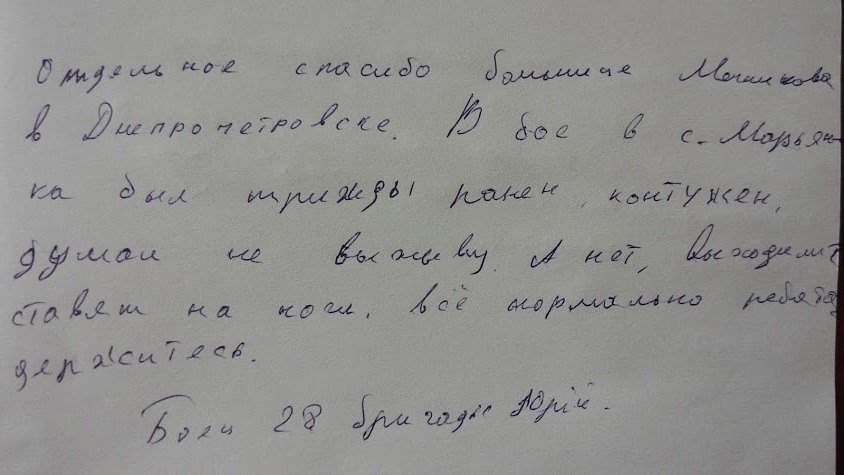 Отдельное спасибо больнице Мечникова
в Днепропетровске. В бое в с. Марьян
ка был трижды ранен, контужен,
думал не выживу. А нет, выходили,
ставят на ноги. Всё нормально ребята,
держитесь.
Боец 28 бригады Юрій.